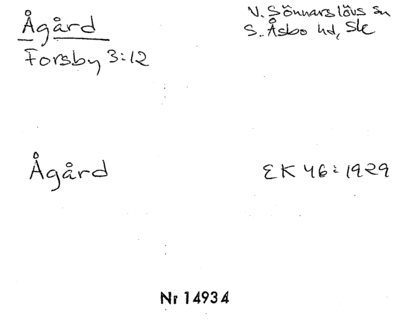 Ågård
V. Sönnarslövs sn
Forsby 3:12
S. Åsbo hd, Sk
Ågård
EK 46:1929
Nr 14934